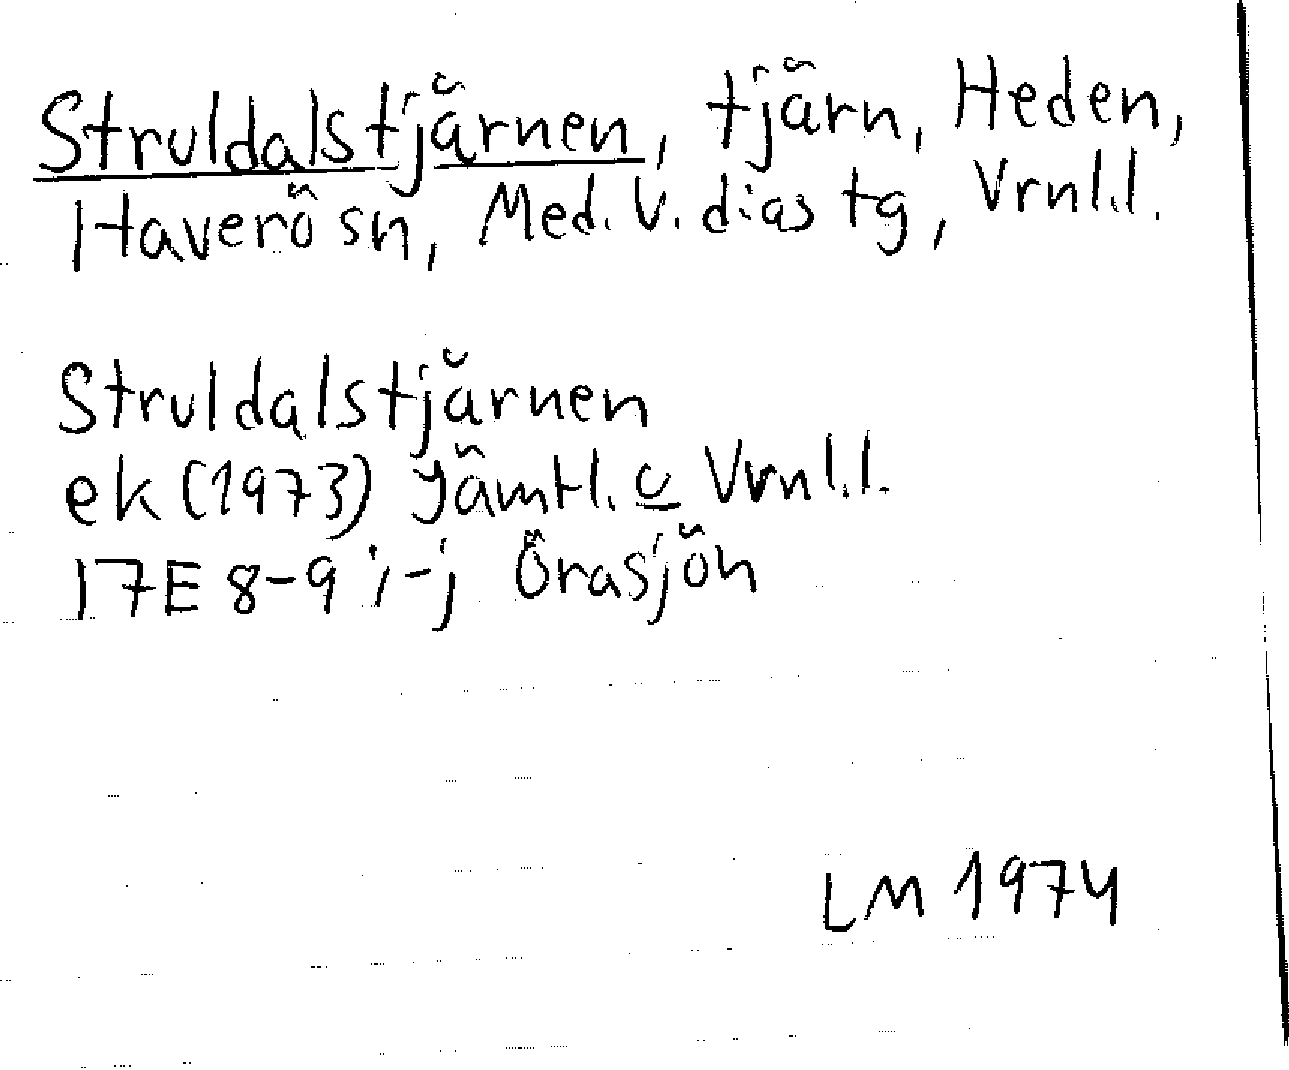 Struldalstjärnen, tjärn, Heden,
Haverö sn, Med. V. dias tg, Vrnl.l.
Struldalstjärnen
ek (1973) Jämtl. c Vrnl.l.
17E 8-9 i-j Örasjön
LM 1974